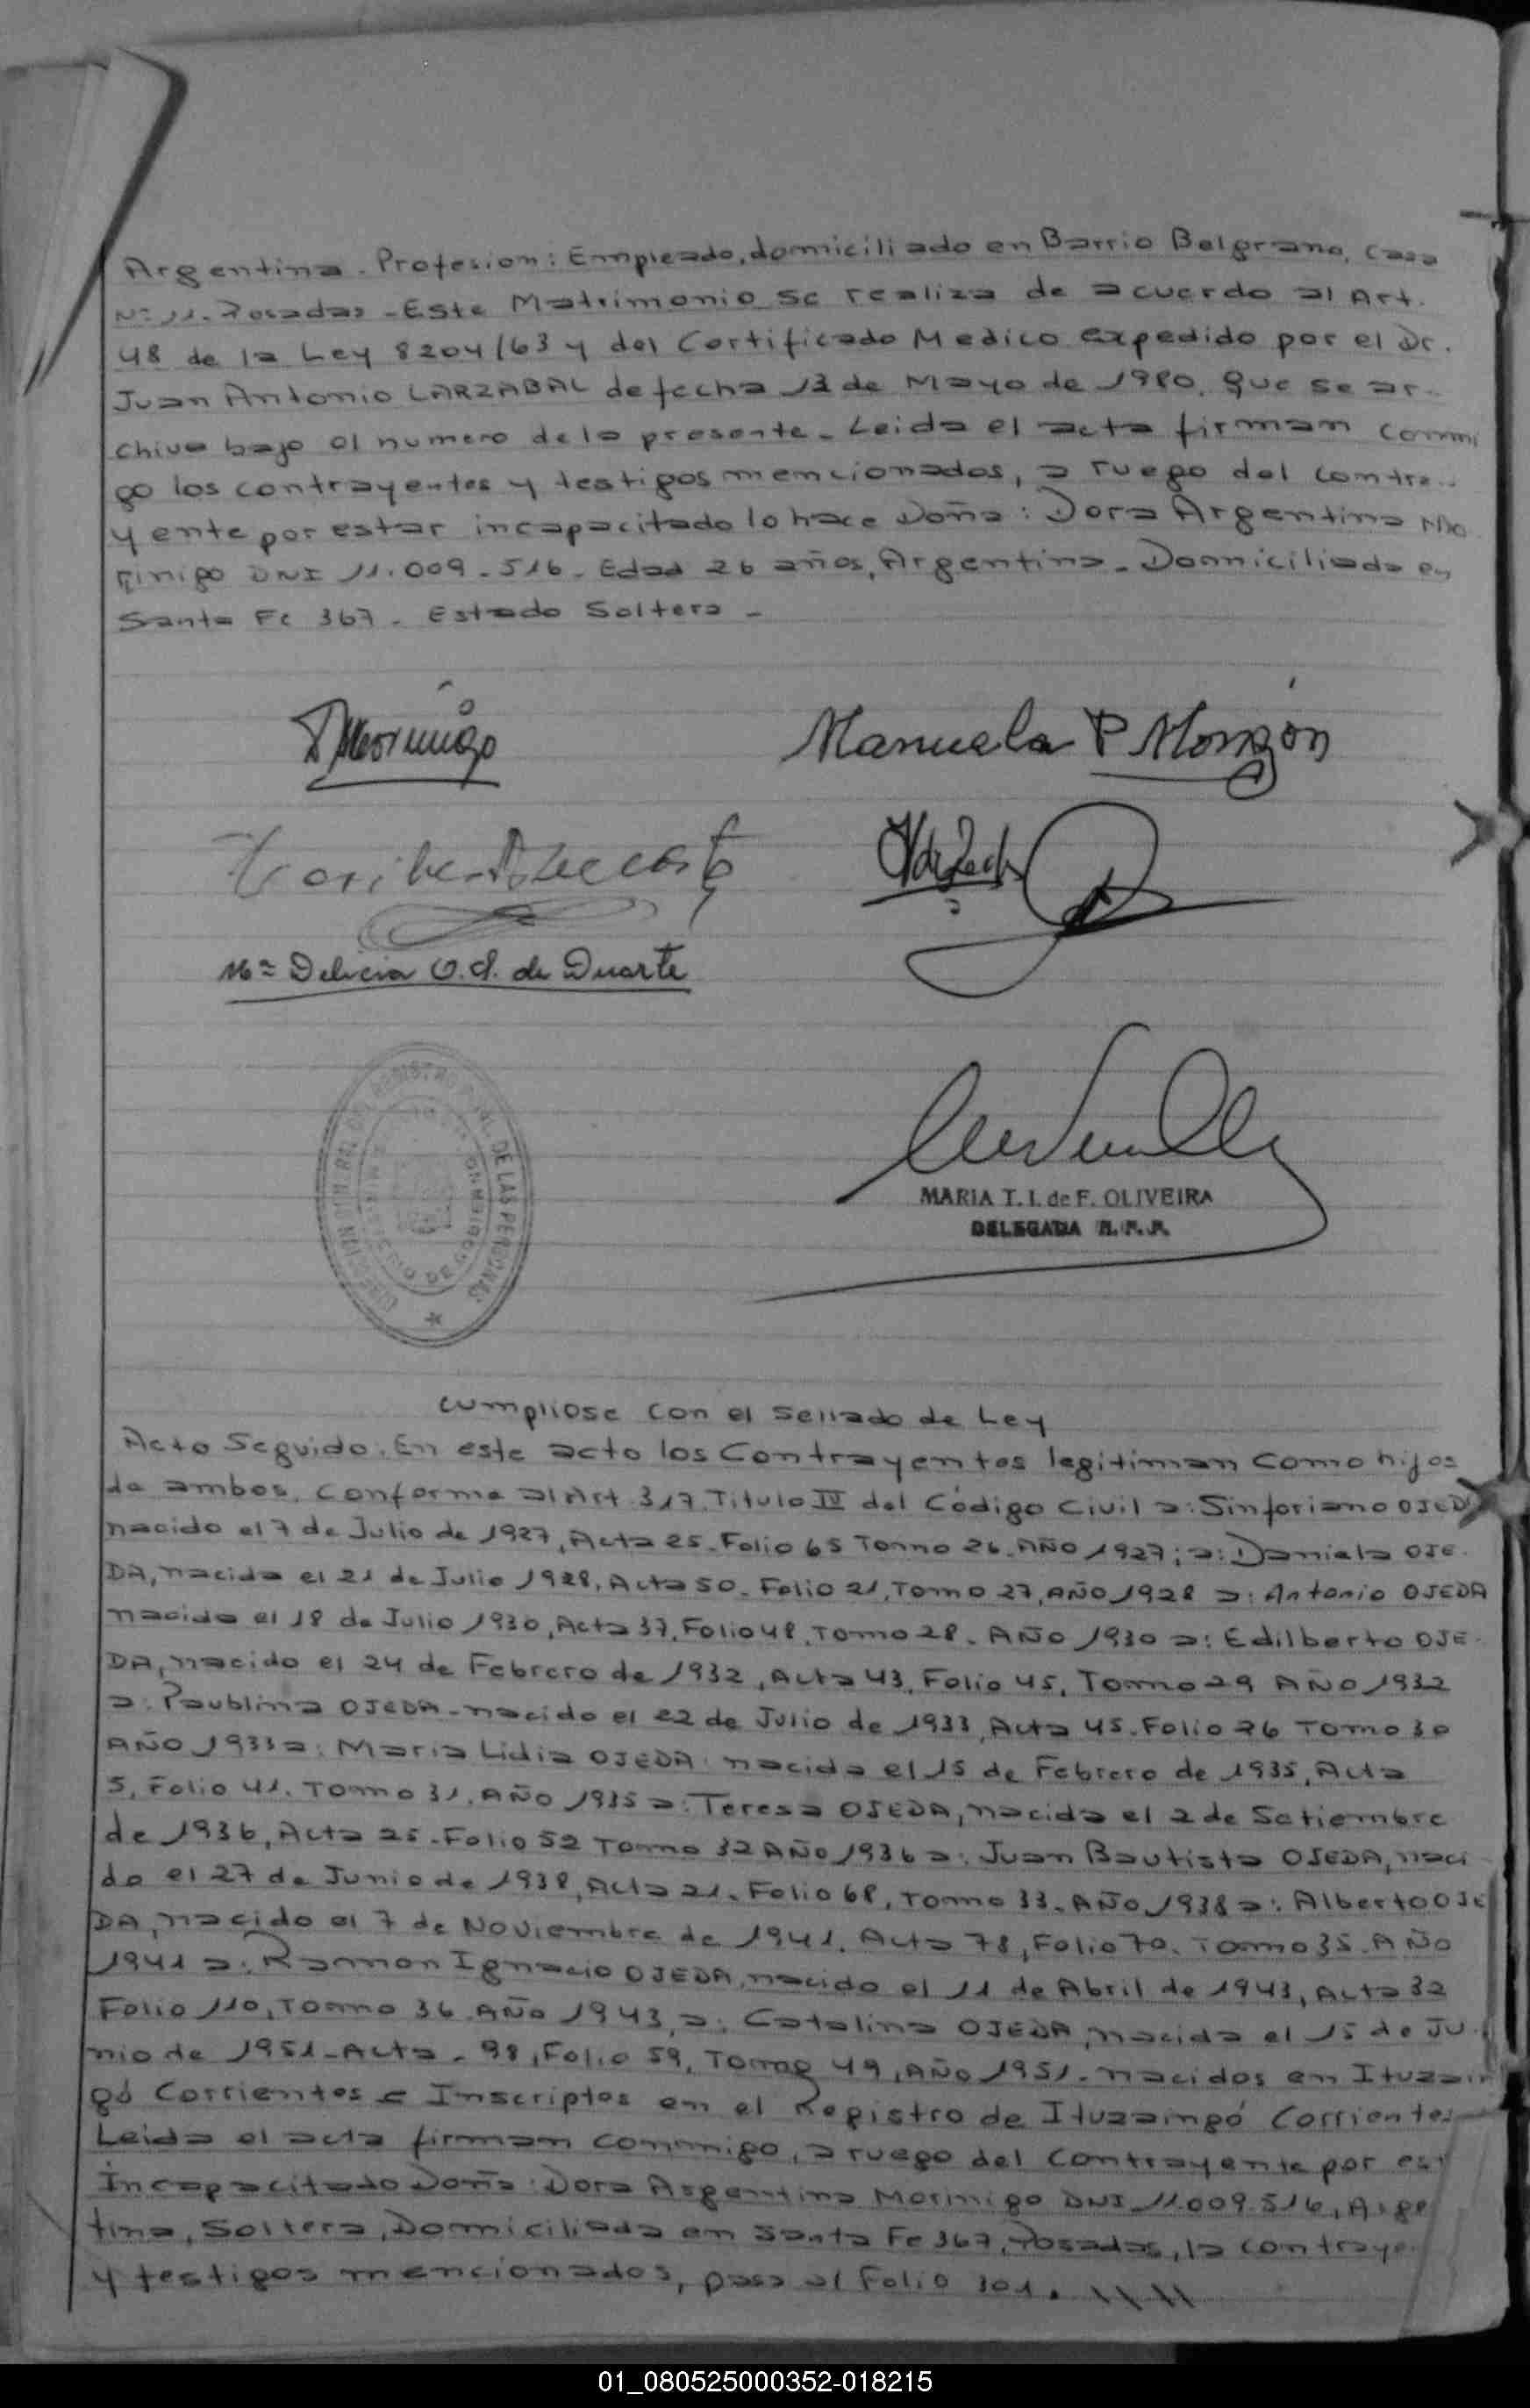 Argentina. Profesion: Empleado, domiciliado en Barrio Belgrano, Casa
Nº 11. Posadas - Este Matrimonio se realiza de acuerdo al Art.
48 de la Ley 8204/63 y del Certificado Medico expedido por el Dr.
Juan Antonio LARZABAL de fecha 13 de Mayo de 1980. Que se ar-
chiva bajo el numero de la presente. Leida el acta firman conmi
go los contrayentes y testigos mencionados, a ruego del contra-
yente por estar incapacitado lo hace Doña: Dora Argentina Mo
rinigo DNI 11.009.516. Edad 26 años, Argentina. Domiciliada en
Santa Fe 367. Estado Soltera -
D Morinigo
Manuela P Monzón
Mª Delicia O. d. de Duarte
DIRECCION GENERAL DEL REGISTRO PCIAL. DE LAS PERSONAS
MINISTERIO DE GOBIERNO
MARIA T. I. de F. OLIVEIRA
DELEGADA R. P. P.
Cumpliose con el Sellado de Ley
Acto Seguido: En este acto los Contrayentes legitiman como hijos
de ambos, conforme al Art. 317. Titulo IV del Código Civil a: Sinforiano OJEDA
nacido el 7 de Julio de 1927, Acta 25. Folio 65 Tomo 26. AÑO 1927; a: Daniela OJE-
DA, nacida el 21 de Julio 1928, Acta 50. Folio 21, Tomo 27, AÑO 1928 a: Antonio OJEDA
nacido el 18 de Julio 1930, Acta 37, Folio 48, Tomo 28. AÑO 1930 a: Edilberto OJE-
DA, nacido el 24 de Febrero de 1932, Acta 43, Folio 45, Tomo 29 AÑO 1932
a: Paublina OJEDA - nacido el 22 de Julio de 1933, Acta 45. Folio 26 Tomo 30
AÑO 1933 a: Maria Lidia OJEDA: nacida el 15 de Febrero de 1935, Acta
5, Folio 41. Tomo 31. AÑO 1935 a: Teresa OJEDA, nacida el 2 de Setiembre
de 1936, Acta 25. Folio 52 Tomo 32 AÑO 1936 a: Juan Bautista OJEDA, naci
do el 27 de Junio de 1938, Acta 21. Folio 68, Tomo 33. AÑO 1938 a: Alberto OJE
DA, nacido el 7 de Noviembre de 1941. Acta 78, Folio 70. Tomo 35. AÑO
1941 a: Ramon Ignacio OJEDA, nacido el 11 de Abril de 1943, Acta 32
Folio 110, Tomo 36. AÑO 1943, a: Catalina OJEDA, nacida el 15 de Ju-
nio de 1951 - Acta. 98, Folio 59, Tomo 49, AÑO 1951. nacidos en Ituzain
gó Corrientes e Inscriptos en el Registro de Ituzaingó Corrientes
Leida el acta firman conmigo, a ruego del contrayente por est
Incapacitado Doña: Dora Argentina Morinigo DNI 11.009.516, Arge
tina, Soltera, Domiciliada en Santa Fe 367, Posadas, la contraye
y testigos mencionados, pasa al Folio 301.
01_080525000352-018215